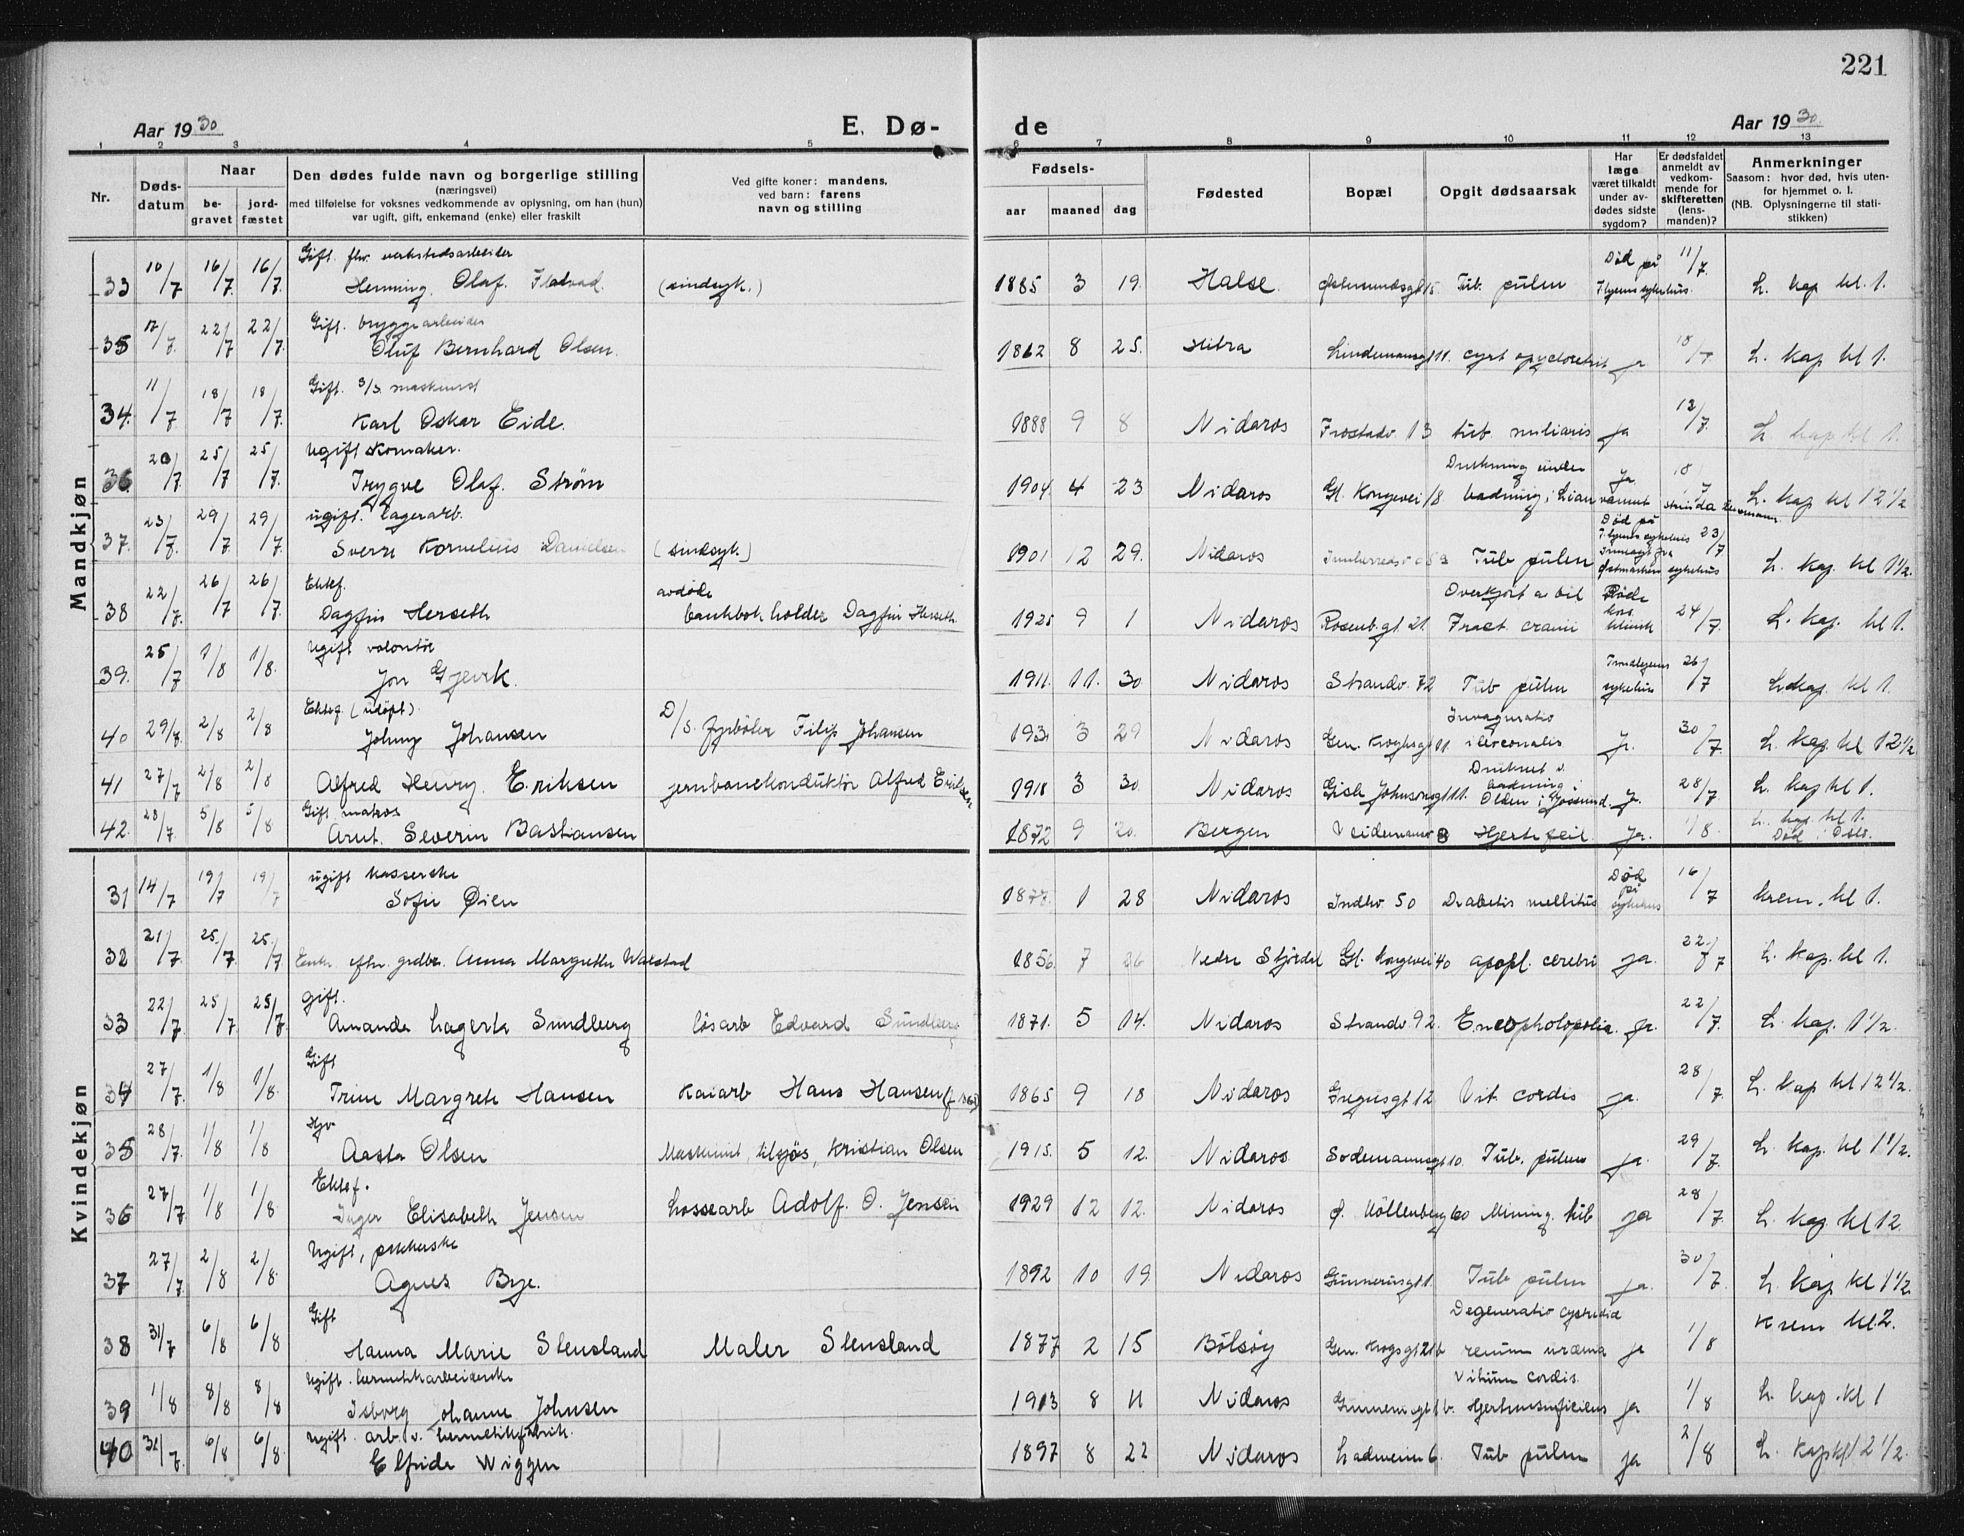 221
Aar 1930
E. Dø-
de
Aar 1930.
1 2 3 4 5 6 7 8 9 10 11 12 13
Nr.
Døds-
datum
Naar
be-
gravet
jord-
fæstet
Den dødes fulde navn og borgerlige stilling
(næringsvei)
med tilføielse for voksnes vedkommende av oplysning, om han (hun)
var ugift, gift, enkemand (enke) eller fraskilt
Ved gifte koner: mandens,
ved barn: farens
navn og stilling
Fødsels-
aar maaned dag
Fødested
Bopæl
Opgit dødsaarsak
Har
læge
været tilkaldt
under av-
dødes sidste
sygdom?
Er dødsfaldet
anmeldt av
vedkom-
mende for
skifteretten
(lens-
manden)?
Anmerkninger
Saasom: hvor død, hvis uten-
for hjemmet o. l.
(NB. Oplysningerne til stati-
stikken)
Mandkjøn
Gift. fhv. verkstedsarbeider Død på 11/7.
33 10/7 16/7. 16/7. Henning Olaf (sindsyk.) 1885 3 19. Halse. Tub. pulm sykehus. L. kap kl. 1.
Gift. bryggearbeider
35 17/7. 22/7 22/7. Oluf Bernhard Olsen. 1862 8 25. Hitra Lindemansgt 11. ja 18/7 L. kap kl 1.
Gift. maskinist
34. 11/7 18/7 18/7. Karl Oskar Eide. 1888 9 8 Nidaros Frostadv. 13 tub. miliaris ja 12/7. L. kap kl 1.
Ugift skomaker. Drukning under Ja
36 20/7 25/7 25/7. Trygve Olaf. Strøm 1904. 4 23 Nidaros Gl. Kongevei 18. badning i Lian 18/7 L. kap kl 12 1/2
ugift. lagerarb. Død på
37. 23/7. 29/7 29/7. Sverre Kornelius Danielsen (sindsyk.) 1901 12 29. Nidaros Tub pulm Østmarken sykehus 23/7 L. kap. kl 1 1/2.
Ektef. avdøde Overkjørt av bil Røde
38 22/7. 26/7 26/7. Dagfin Herseth bankbokholder Dagfin Herseth 1925 9 1 Nidaros Rosenb.gt 21. Fract. cranii klinik 24/7. L. kap. kl 1.
Ugift volontør
39. 25/7 1/8 1/8. Jon Gjervk. 1911. 11. 30 Nidaros Strandv. 72 Tub pulm sykehus 26/7 L kap. kl 1.
Ektef. (udøpt). Invaginatio
40 29/8. 2/8 2/8 Johny Johansen D/S. fyrbøter Filip Johansen 193 3 29 Nidaros Gen. Kroghsgt 11. Ja. 30/7. L. kap kl 12 1/2
Druknet v. badning
41 27/7 2/8 2/8 Alfred Henry. Eriksen jernbanekonduktør Alfred Eriksen 1918 3 30 Nidaros Gisle Johnsonsgt 11. Ja. 28/7 L. kap kl 1.
Gift
42. 28/7. 5/8 5/8 Arnt. Severin Bastiansen 1872 9 20. Bergen Hjertefeil Ja. 1/8. L. kap. kl 1. Død i Oslo.
Kvindekjøn
ugift kassererske Død på
31 14/7 19/7 19/7 Sofie Øien 1877. 1 28 Nidaros Indhv. 50 Diabetis mellitus sykehus 16/7 krem. kl 1.
32 21/7. 25./7. 25./7 Enke efter grdbr. Anna Margrethe Walstad 1856. 7 26 Nedre Stjørdal Gl. Kongevei 40 apopl. cerebri ja. 22./7 L. kap. kl 1.
gift.
33 22/7 25/7. 25/7. Amanda Lagerta Sundberg løsarb Edvard Sundberg 1871. 5 14. Nidaros Strandv. 92. ja. 22/7. L. kap. 1 1/2.
Gift
34 27/7. 1/8 1/8. Trine Margrete Hansen Kaiarb Hans Hansen 1865 9 18 Nidaros Gregusgt 12 Vit. cordis ja. 28/7. L. kap kl 12 1/2.
35 28/7. 1/8 1/8 Aasta Olsen Maskinist tilsjøs, Kristian Olsen 1915. 5 12. Nidaros Sodemannsgt 10. Tub. pulm ja. 29/7. L. kap. kl 1 1/2.
Ektef.
36 27/7. 1/8 1/8 Inger Elisabeth Jensen Lossearb Adolf. O. Jensen 1929 12 12. Nidaros Ø. Möllenberg 60 Mining. tub ja 28/7. L. kap kl 12.
Ugift, pakkerske
37 27/7. 2/8 2/8. Agnes Bye. 1892 10 19. Nidaros Gunnerusgt 1. Tub pulm ja. 30/7. L. kap kl 1 1/2.
Gift Degeneratio krem kl. 2.
38 31/7 6/8 6/8 Hanna Marie Stensland Maler Stensland 1877 2 15 Bolsøy renum uræmia ja 1/8
Ugift. hermetikkarbeiderske Vitium cordis.
39 1/8 8/8 8/8 Isborg Johanne Johnsen 1913 8 11 Nidaros ja 1/8 L. kap. kl 1
Ugift. arb. v. hermetikfabrik.
40 31/7. 6/8 6/8. Elfride Wiggen 1897 8 22 Nidaros Ladeveien 6. Tub pulm ja 2/8 L. kap kl 12 1/2.